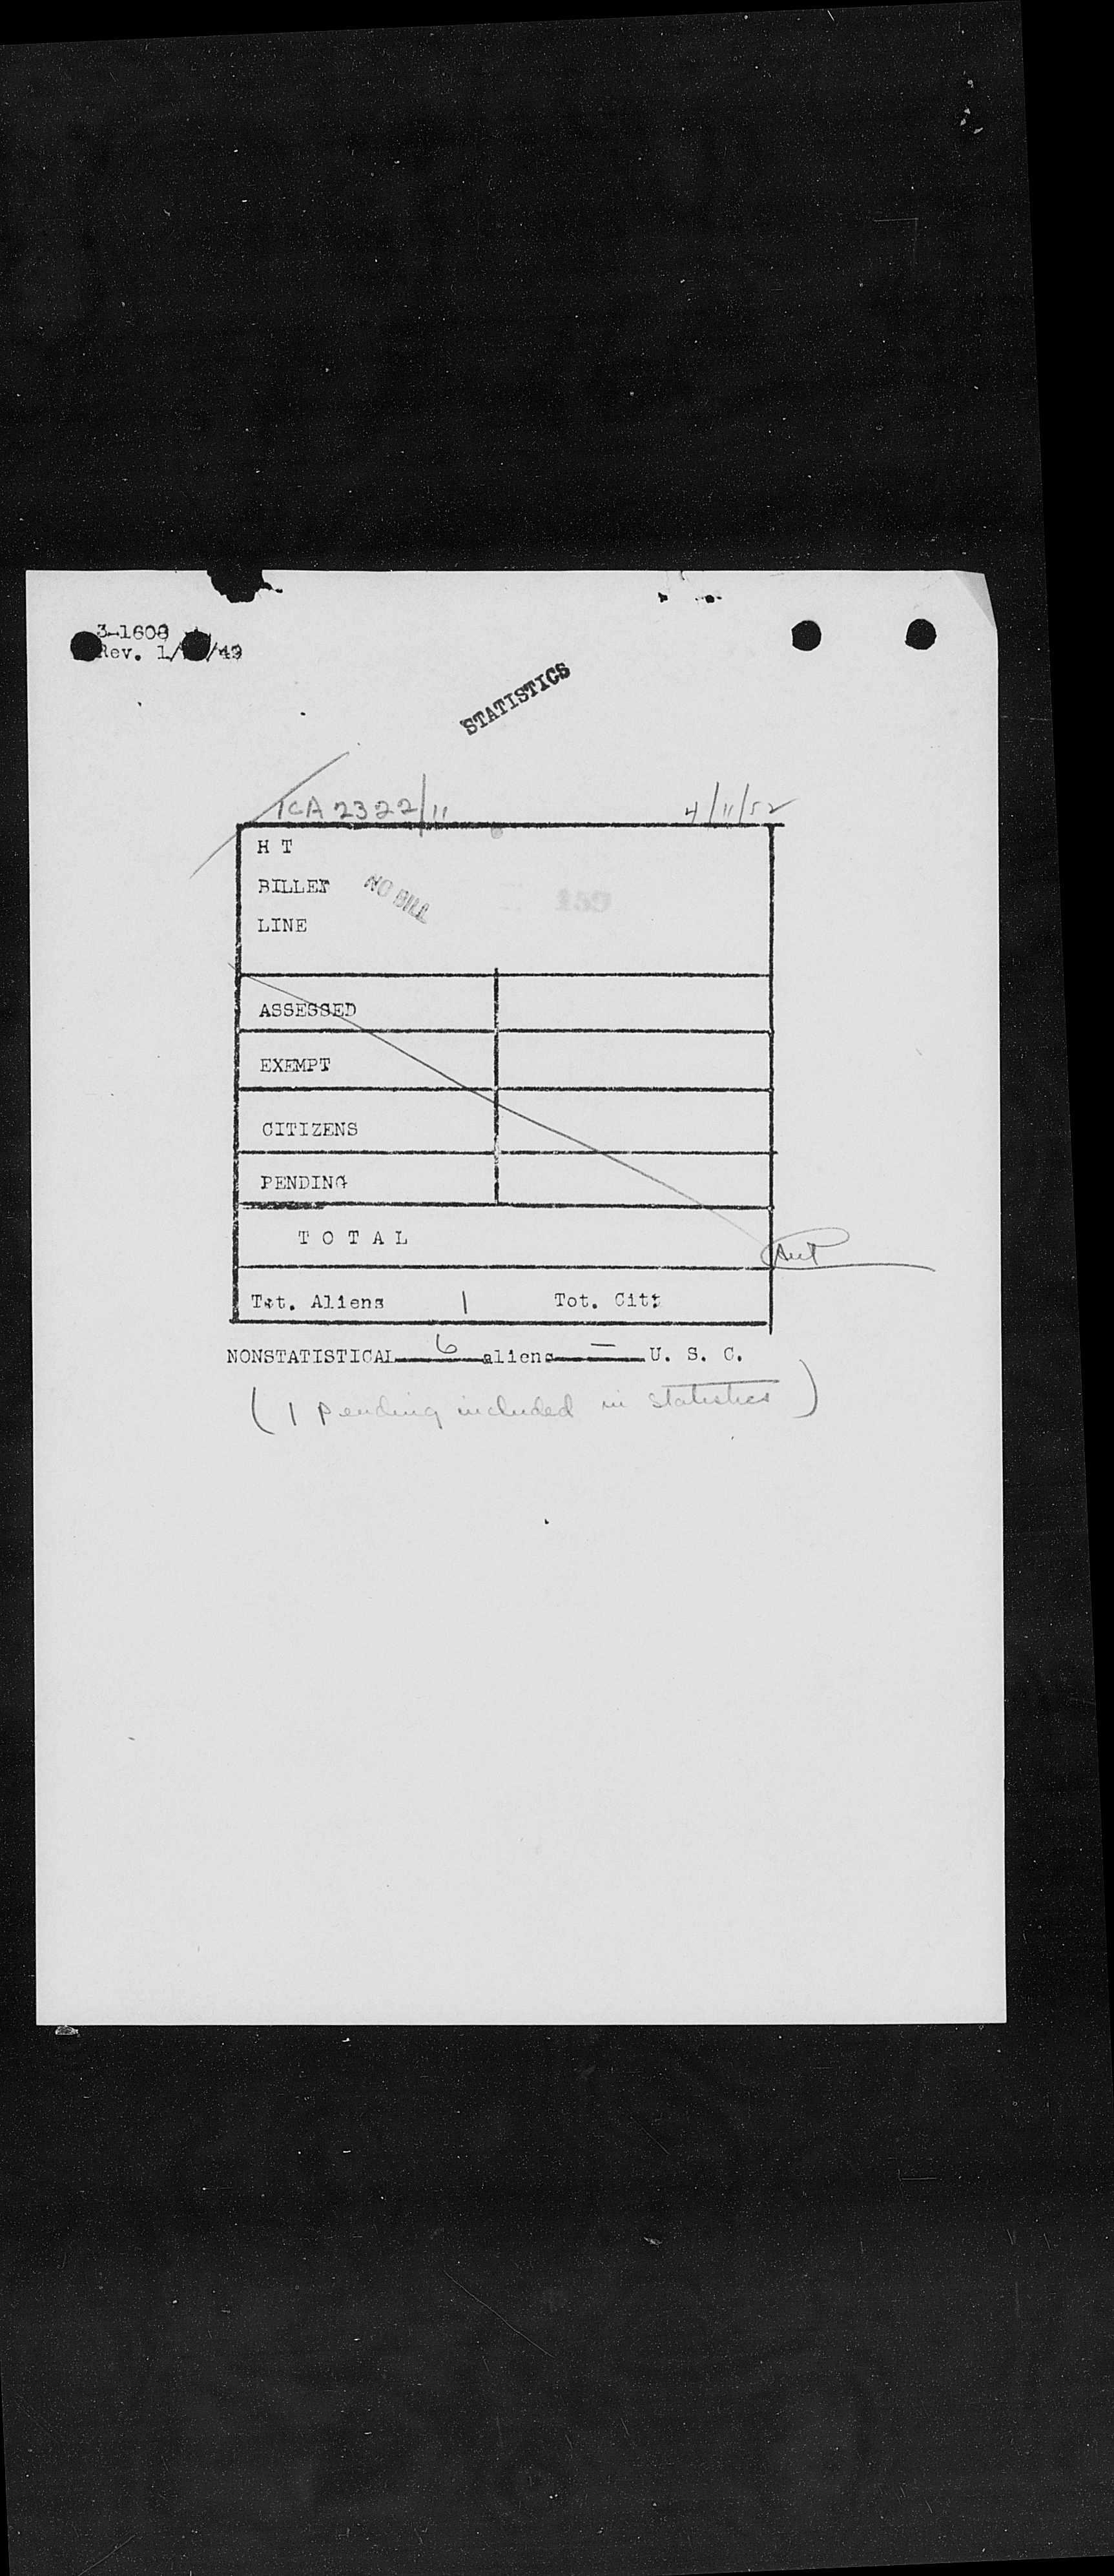 3-1608
Rev. 1/ /49
STATISTICS
TCA 2322/11 4/11/52
H T
BILLET NO BILL
LINE
ASSESSED
EXEMPT
CITIZENS
PENDING
T O T A L
Tot. Aliens 1 Tot. Citz
NONSTATISTICAL 6 aliens — U. S. C.
( 1 pending included in statistics )